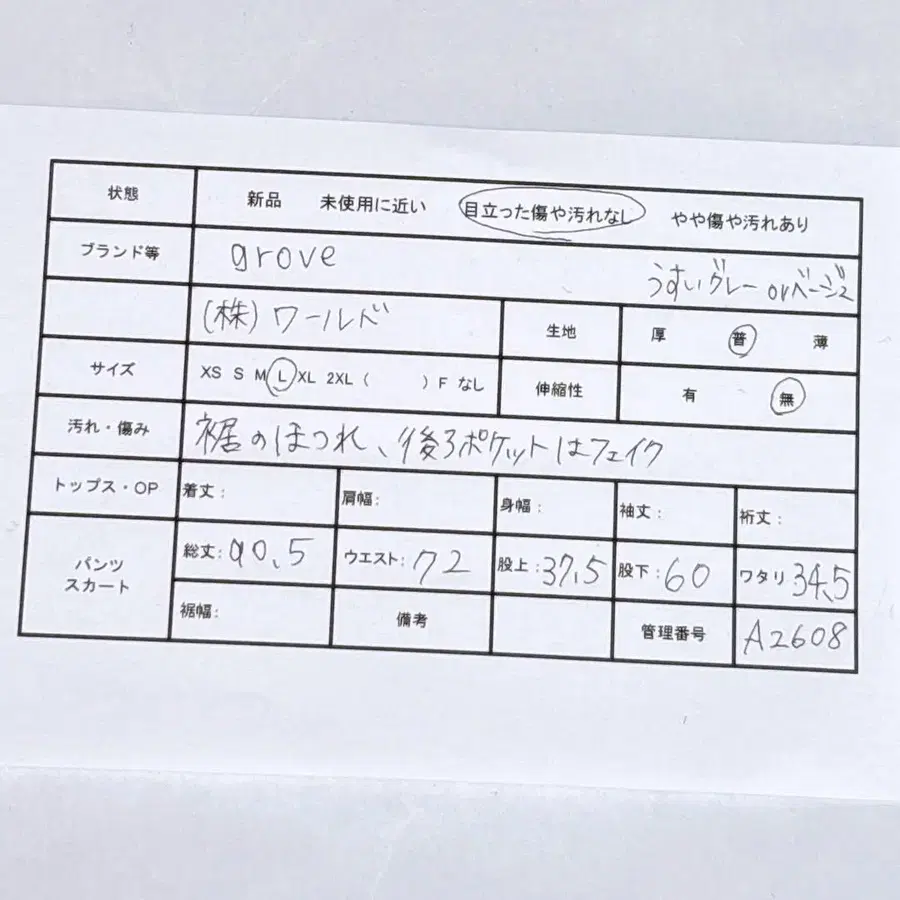 状態 新品 未使用に近い 目立った傷や汚れなし やや傷や汚れあり
ブランド等 grove うすいグレー orベージュ
(株)ワールド 生地 厚 普 薄
サイズ XS S M L XL 2XL ( ) F なし 伸縮性 有 無
汚れ・傷み 裾のほつれ、後ろポケットはフェイク
トップス・OP 着丈: 肩幅: 身幅: 袖丈: 裄丈:
パンツ スカート 総丈: 90.5 ウエスト: 72 股上: 37.5 股下: 60 ワタリ 34.5
裾幅: 備考 管理番号 A2608